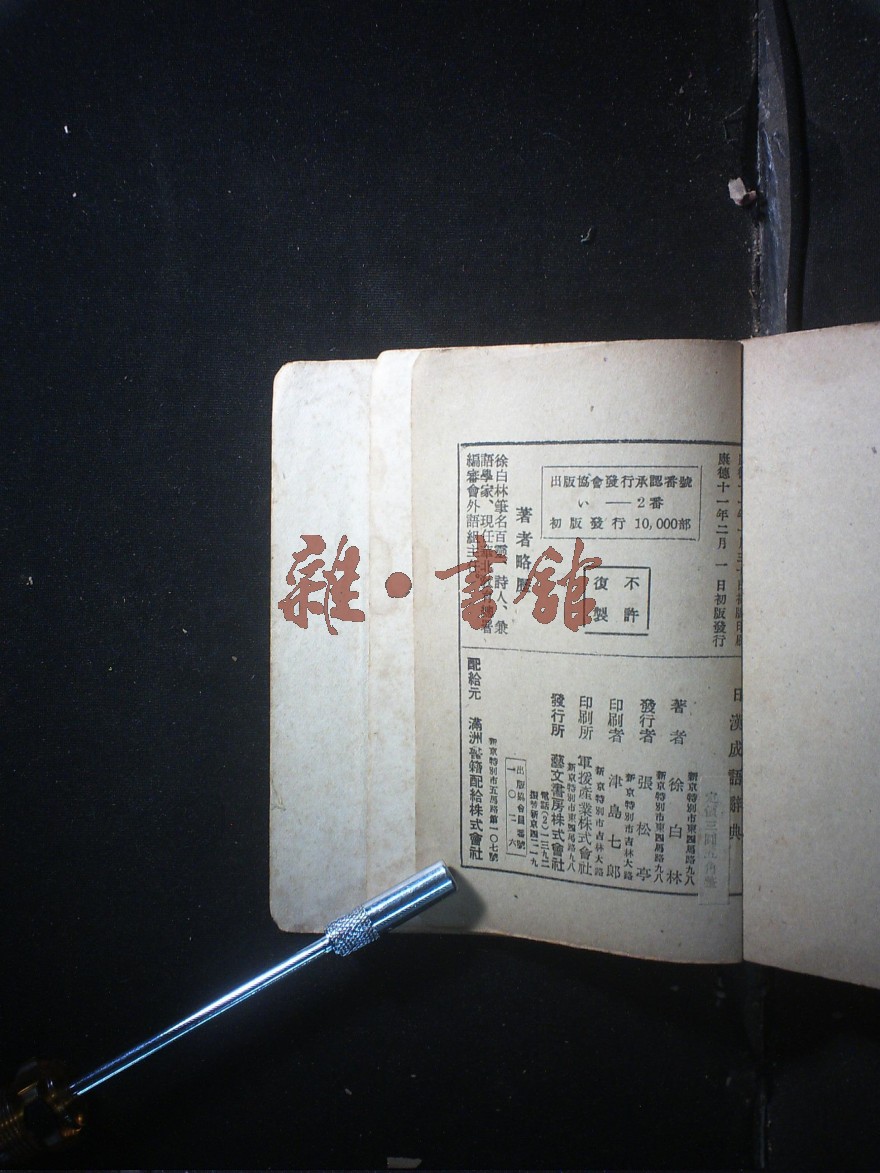 康德十一年二月 一 日初版發行
出版協會發行承認番號
い —— 2 番
初版發行 10,000部
不許
復製
著者略歷
徐白林筆名百靈、詩人、兼
語學家、現任華北
編審會外語組主任
日漢成語辭典
新京特別市東四馬路九八
著者 徐白林
新京特別市東四馬路九八
發行者 張松亭
新京特別市吉林大路
印刷者 津島七郎
新京特別市吉林大路
印刷所 軍援産業株式會社
新京特別市東四馬路九八
發行所 藝文書房株式會社
電話(2)一三九二
振替新京四二一九
出版協會會員番號
一一〇一一六
新京特別市五馬路第一〇七號
配給元 滿洲書籍配給株式會社
雜·書館